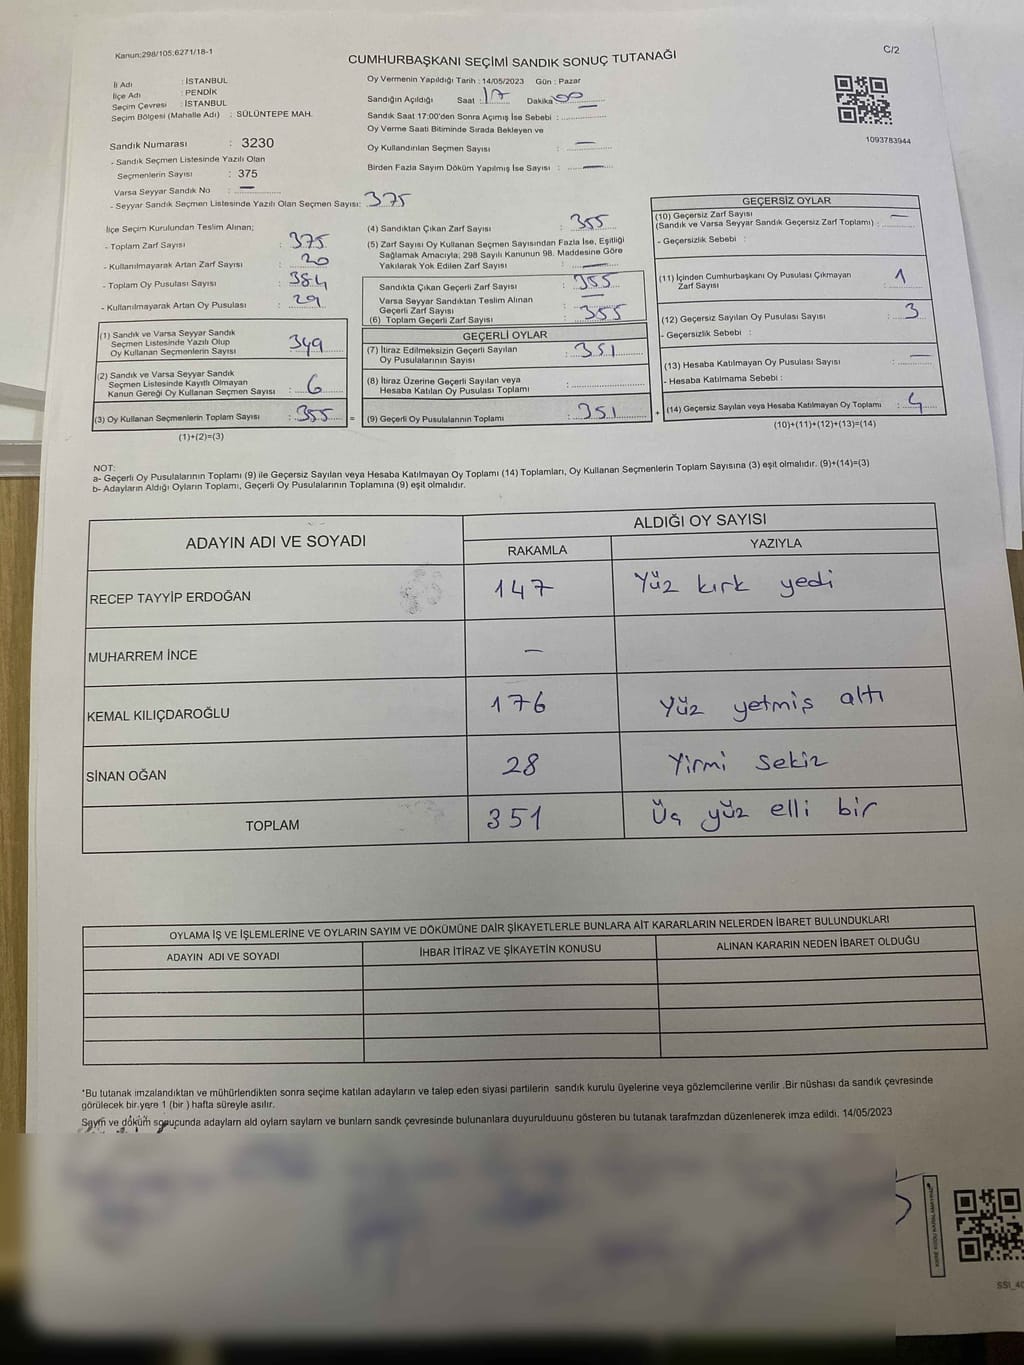 Kanun:298/105,6271/18-1
CUMHURBAŞKANI SEÇİMİ SANDIK SONUÇ TUTANAĞI
C/2
İl Adı : İSTANBUL
İlçe Adı : PENDİK
Seçim Çevresi : İSTANBUL
Seçim Bölgesi (Mahalle Adı) : SÜLÜNTEPE MAH.
Sandık Numarası : 3230
- Sandık Seçmen Listesinde Yazılı Olan
Seçmenlerin Sayısı : 375
Varsa Seyyar Sandık No : —
- Seyyar Sandık Seçmen Listesinde Yazılı Olan Seçmen Sayısı: 375
Oy Vermenin Yapıldığı Tarih : 14/05/2023 Gün : Pazar
Sandığın Açıldığı Saat : 17 Dakika 00
Sandık Saat 17:00'den Sonra Açımış İse Sebebi :
Oy Verme Saati Bitiminde Sırada Bekleyen ve
Oy Kullandırılan Seçmen Sayısı : —
Birden Fazla Sayım Döküm Yapılmış İse Sayısı : —
1093783944
İlçe Seçim Kurulundan Teslim Alınan;
- Toplam Zarf Sayısı : 375
- Kullanılmayarak Artan Zarf Sayısı : 20
- Toplam Oy Pusulası Sayısı : 384
- Kullanılmayarak Artan Oy Pusulası : 29
(1) Sandık ve Varsa Seyyar Sandık
Seçmen Listesinde Yazılı Olup
Oy Kullanan Seçmenlerin Sayısı : 349
(2) Sandık ve Varsa Seyyar Sandık
Seçmen Listesinde Kayıtlı Olmayan
Kanun Gereği Oy Kullanan Seçmen Sayısı : 6
(3) Oy Kullanan Seçmenlerin Toplam Sayısı : 355 =
(1)+(2)=(3)
(4) Sandıktan Çıkan Zarf Sayısı : 355
(5) Zarf Sayısı Oy Kullanan Seçmen Sayısından Fazla İse, Eşitliği
Sağlamak Amacıyla; 298 Sayılı Kanunun 98. Maddesine Göre
Yakılarak Yok Edilen Zarf Sayısı : —
Sandıkta Çıkan Geçerli Zarf Sayısı : 355
Varsa Seyyar Sandıktan Teslim Alınan
Geçerli Zarf Sayısı : —
(6) Toplam Geçerli Zarf Sayısı : 355
GEÇERLİ OYLAR
(7) İtiraz Edilmeksizin Geçerli Sayılan
Oy Pusulalarının Sayısı : 351
(8) İtiraz Üzerine Geçerli Sayılan veya
Hesaba Katılan Oy Pusulası Toplamı :
(9) Geçerli Oy Pusulalarının Toplamı : 351 +
GEÇERSİZ OYLAR
(10) Geçersiz Zarf Sayısı
(Sandık ve Varsa Seyyar Sandık Geçersiz Zarf Toplamı) : —
- Geçersizlik Sebebi :
(11) İçinden Cumhurbaşkanı Oy Pusulası Çıkmayan
Zarf Sayısı : 1
(12) Geçersiz Sayılan Oy Pusulası Sayısı : 3
- Geçersizlik Sebebi :
(13) Hesaba Katılmayan Oy Pusulası Sayısı : —
- Hesaba Katılmama Sebebi :
(14) Geçersiz Sayılan veya Hesaba Katılmayan Oy Toplamı : 4
(10)+(11)+(12)+(13)=(14)
NOT:
a- Geçerli Oy Pusulalarının Toplamı (9) ile Geçersiz Sayılan veya Hesaba Katılmayan Oy Toplamı (14) Toplamları, Oy Kullanan Seçmenlerin Toplam Sayısına (3) eşit olmalıdır. (9)+(14)=(3)
b- Adayların Aldığı Oyların Toplamı, Geçerli Oy Pusulalarının Toplamına (9) eşit olmalıdır.
ADAYIN ADI VE SOYADI ALDIĞI OY SAYISI
RAKAMLA YAZIYLA
RECEP TAYYİP ERDOĞAN 147 Yüz kırk yedi
MUHARREM İNCE —
KEMAL KILIÇDAROĞLU 176 Yüz yetmiş altı
SİNAN OĞAN 28 Yirmi sekiz
TOPLAM 351 Üç yüz elli bir
OYLAMA İŞ VE İŞLEMLERİNE VE OYLARIN SAYIM VE DÖKÜMÜNE DAİR ŞİKAYETLERLE BUNLARA AİT KARARLARIN NELERDEN İBARET BULUNDUKLARI
ADAYIN ADI VE SOYADI İHBAR İTİRAZ VE ŞİKAYETİN KONUSU ALINAN KARARIN NEDEN İBARET OLDUĞU
*Bu tutanak imzalandıktan ve mühürlendikten sonra seçime katılan adayların ve talep eden siyasi partilerin sandık kurulu üyelerine veya gözlemcilerine verilir .Bir nüshası da sandık çevresinde
görülecek bir yere 1 (bir ) hafta süreyle asılır.
Sayım ve döküm sonucunda adayların ald oyların sayların ve bunların sandk çevresinde bulunanlara duyurulduunu gösteren bu tutanak tarafmzdan düzenlenerek imza edildi. 14/05/2023